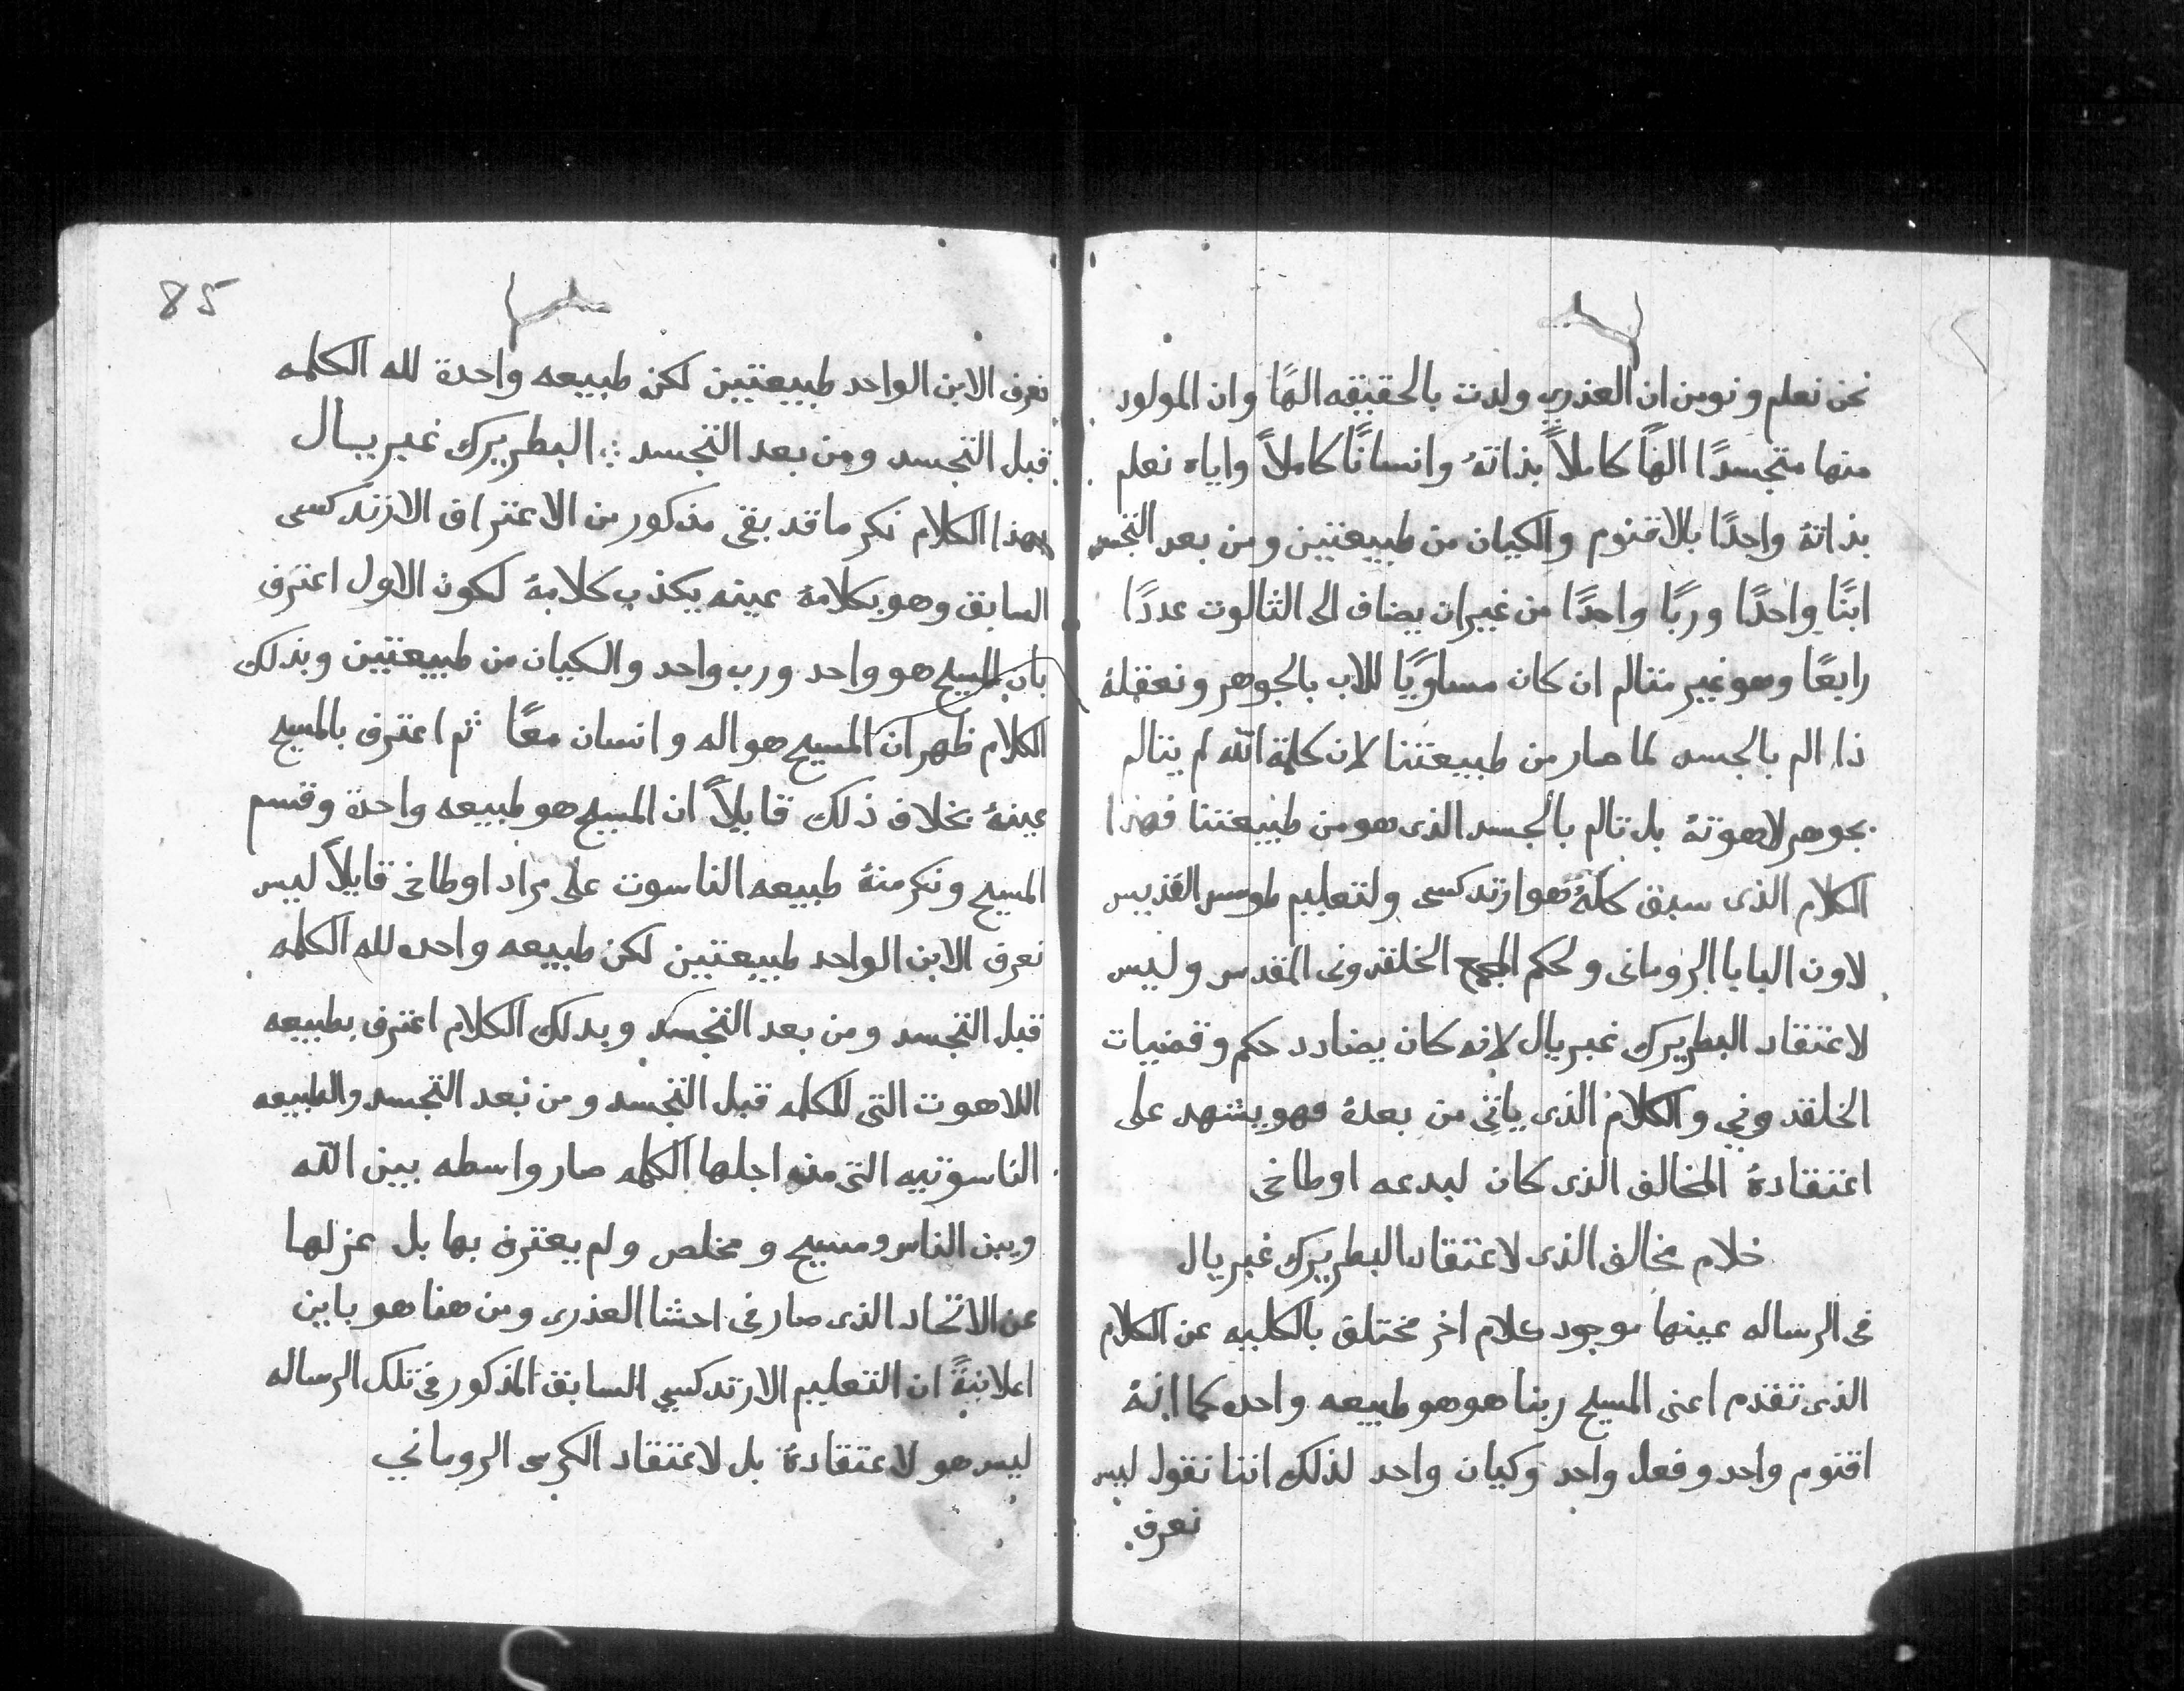 نحن نعلم ونومن ان العذري ولدت بالحقيقه الهًا وان المولود
منها متجسدًا الهًا كاملاً بذاتهُ وانسانًا كاملاً واياه نعلم
بذاتهُ واحدًا بالاقنوم والكيان من طبيعتين ومن بعد التجسد
ابنًا واحدًا وربًا واحدًا من غير ان يضاف الى الثالوث عددًا
رابعًا وهو غير متالم ان كان مساويًا للاب بالجوهر ونعقلهُ
ذا الم بالجسد لما صار من طبيعتنا لان كلمة الله لم يتالم
بجوهر لاهوتهُ بل تالم بالجسد الذى هو من طبيعتنا فهذا
الكلام الذى سبق كلهُ هو ارتدكسى ولتعليم طومس القديس
لاون البابا الرومانى ولحكم المجمع الخلقدونى المقدس وليس
لاعتقاد البطريرك غبريال لانه كان يضادد حكم وقضيات
الخلقدوني والكلام الذى ياتي من بعدهُ فهو يشهد على
اعتقادهُ المخالف الذى كان لبدعه اوطاخى
خلام مخالف الذى لاعتقاد البطريرك غبريال
فى الرساله عينها موجود كلام اخر مختلق بالكليه عن الكلام
الذى تقدم اعنى المسيح ربنا هو هو طبيعه واحده كما انهُ
اقنوم واحد وفعل واحد وكيان واحد لذلك اننا نقول ليس
نعرف
85
نعرف الابن الواحد طبيعتين لكن طبيعه واحدة لله الكلمه
قبل التجسد ومن بعد التجسد ܀ البطريرك غبريال
بهذا الكلام نكر ما قد بقى مذكور من الاعتراف الارتدكسى
السابق وهو بكلامهُ عينه يكذب كلامهُ لكون الاول اعترف
بان المسيح هو واحد ورب واحد والكيان من طبيعتين وبذلك
الكلام ظهر ان المسيح هو اله وانسان معًا ثم اعترف بالمسيح
عينهُ بخلاف ذلك قايلاً ان المسيح هو طبيعه واحدة وقسم
المسيح ونكر منهُ طبيعه الناسوت على مراد اوطاخى قايلاً ليس
نعرف الابن الواحد طبيعتين لكن طبيعه واحده لله الكلمه
قبل التجسد ومن بعد التجسد وبدلك الكلام اعترف بطبيعه
اللاهوت التى للكلمه قبل التجسد ومن بعد التجسد والطبيعه
الناسوتيه التى من اجلها الكلمه صار واسطه بين الله
وبين الناس ومسيح ومخلص ولم يعترف بها بل عزلها
عن الاتحاد الذى صار فى احشا العذرى ومن هنا هو باين
اعلانيةً ان التعليم الارتدكسي السابق المذكور فى تلك الرساله
ليس هو لاعتقادهُ بل لاعتقاد الكرسى الروماني